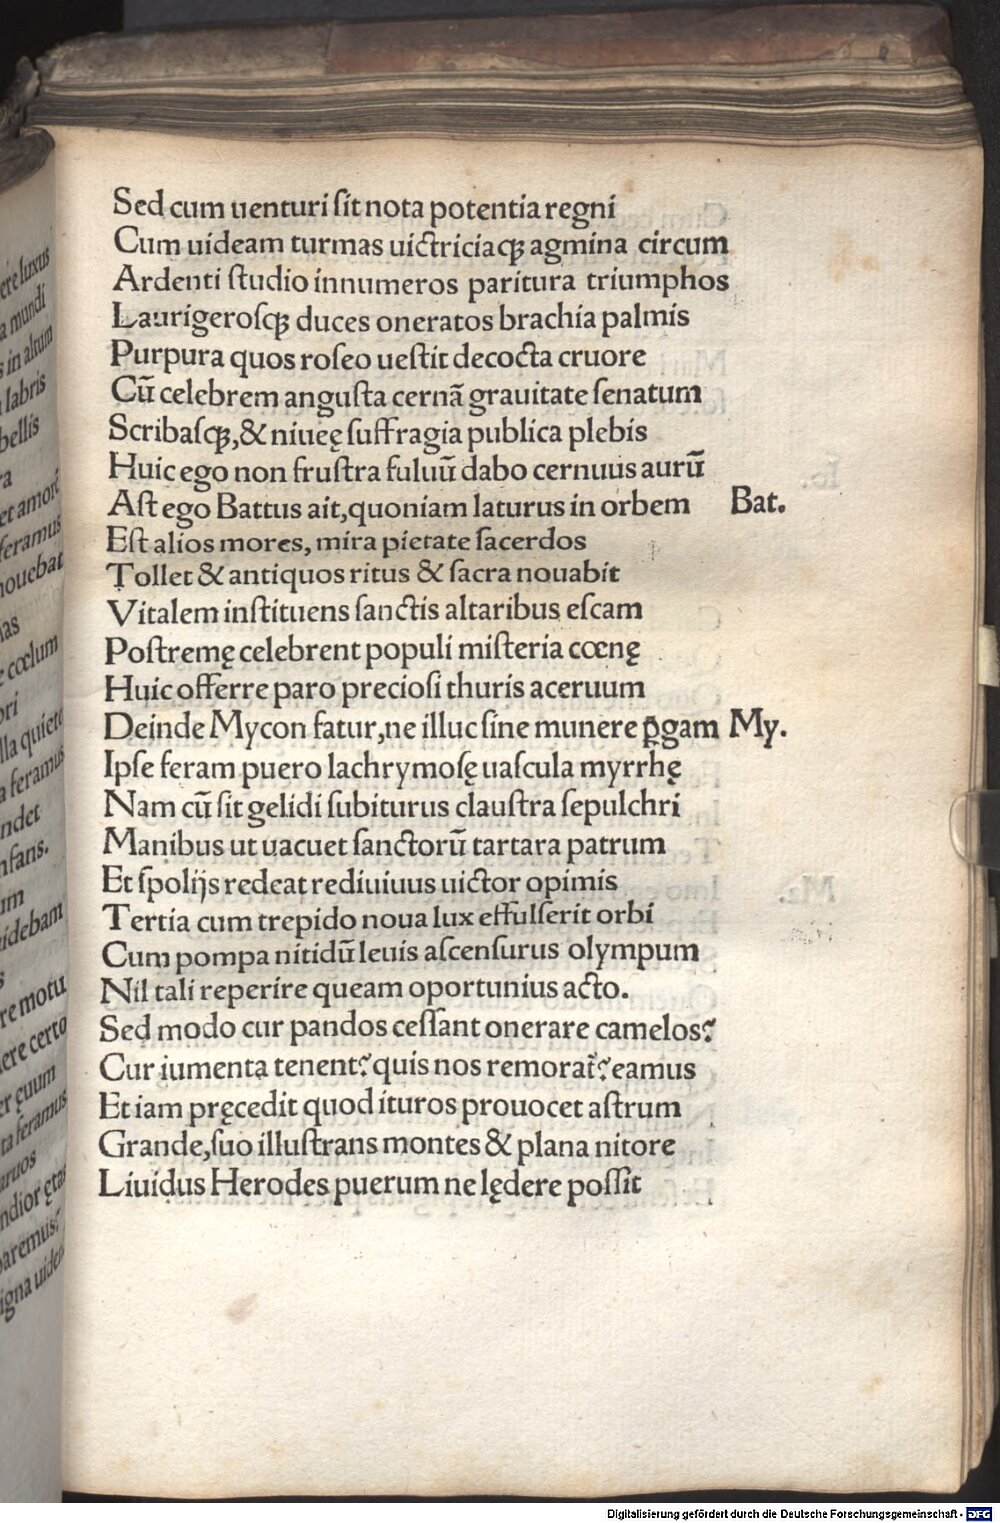 Sed cum uenturi ſit nota potentia regni
Cum uideam turmas uictriciaqꝫ agmina circum
Ardenti ſtudio innumeros paritura triumphos
Laurigeroſqꝫ duces oneratos brachia palmis
Purpura quos roſeo ueſtit decocta cruore
Cū celebrem anguſta cernā grauitate ſenatum
Scribaſqꝫ,& niueę ſuffragia publica plebis
Huic ego non fruſtra fuluū dabo cernuus aurū
Aſt ego Battus ait,quoniam laturus in orbem Bat.
Eſt alios mores, mira pietate ſacerdos
Tollet & antiquos ritus & ſacra nouabit
Vitalem inſtituens ſanctis altaribus eſcam
Poſtremę celebrent populi miſteria cœnę
Huic offerre paro precioſi thuris aceruum
Deinde Mycon fatur,ne illuc ſine munere ꝑgam My.
Ipſe feram puero lachrymoſę uaſcula myrrhę
Nam cū ſit gelidi ſubiturus clauſtra ſepulchri
Manibus ut uacuet ſanctorū tartara patrum
Et ſpolijs redeat rediuiuus uictor opimis
Tertia cum trepido noua lux effulſerit orbi
Cum pompa nitidū leuis aſcenſurus olympum
Nil tali reperire queam oportunius acto.
Sed modo cur pandos ceſſant onerare camelos?
Cur iumenta tenent? quis nos remorat̄? eamus
Et iam pręcedit quod ituros prouocet aſtrum
Grande,ſuo illuſtrans montes & plana nitore
Liuidus Herodes puerum ne lędere poſſit
ere luxus
a mundi
s in altum
labris
bellis
ra
et amorē
feramus
mouebat
nas
e cœlum
ori
lla quiete
a feramus
ndet
nfans.
um
uidebam
s
re motu
uere certo
er ęuum
ta feramus
aruos
ndior ętas
paremus?
Digitalisierung gefördert durch die Deutsche Forschungsgemeinschaft - DFG